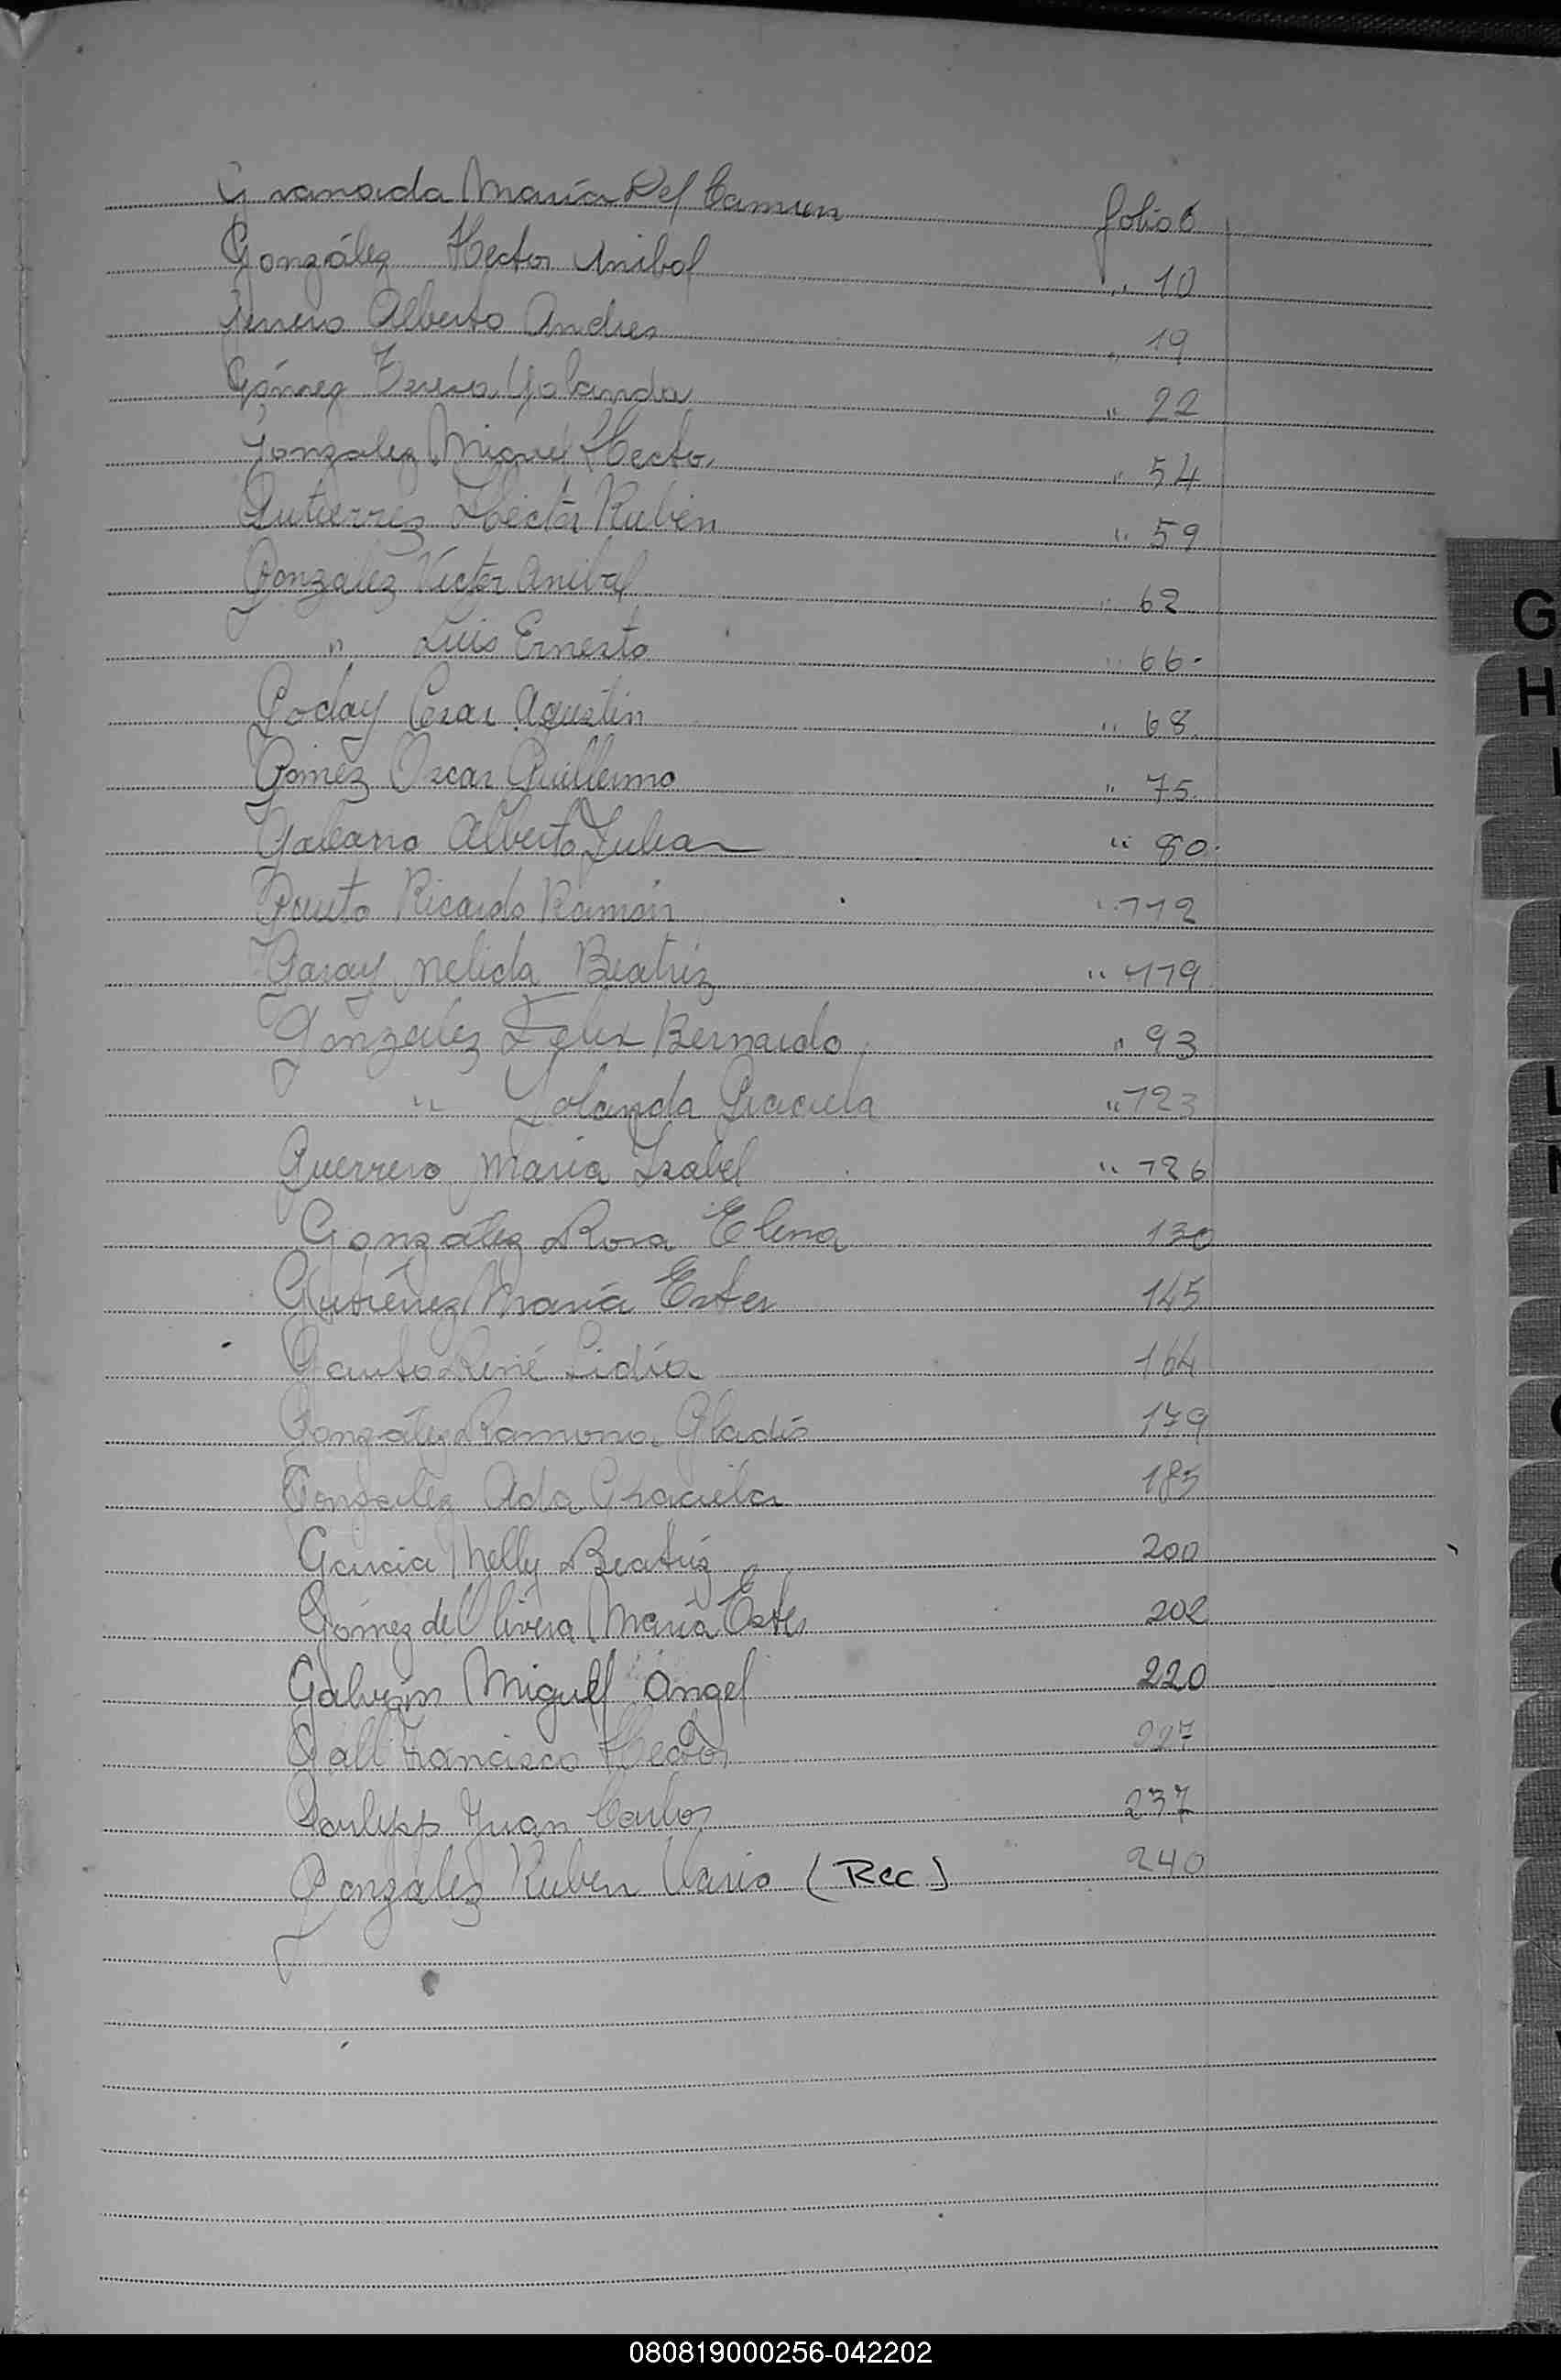 Granada María Del Carmen folio 6
González Hector Anibal " 10
Alberto Andres " 19
Gómez Teresa Yolanda " 22
Gonzalez Miguel Hector " 54
Gutierrez Héctor Rubén " 59
Gonzalez Víctor Anibal " 62
" Luis Ernesto " 66.
Goday Cesar Agustin " 68.
Gómez Oscar Guillermo " 75.
Galeano Alberto Julian " 80.
Gauto Ricardo Ramón " 112
Garay Nelida Beatriz " 119
Gonzalez Felix Bernardo " 93
" Yolanda Graciela " 123
Guerrero Maria Isabel " 126
González Rosa Elena 130
Gutiérrez María Ester 145
Gauto René Lidia 164
González Ramona Gladis 179
Gonzalez Ada Graciela 185
Garcia Nelly Beatriz 200
Gómez de Olivera María Ester 202
Galván Miguel Angel 220
Gall Francisco Hector 227
Juan Carlos 237
Gonzalez Ruben Dario (Rec.) 240
G
H
L
N
080819000256-042202